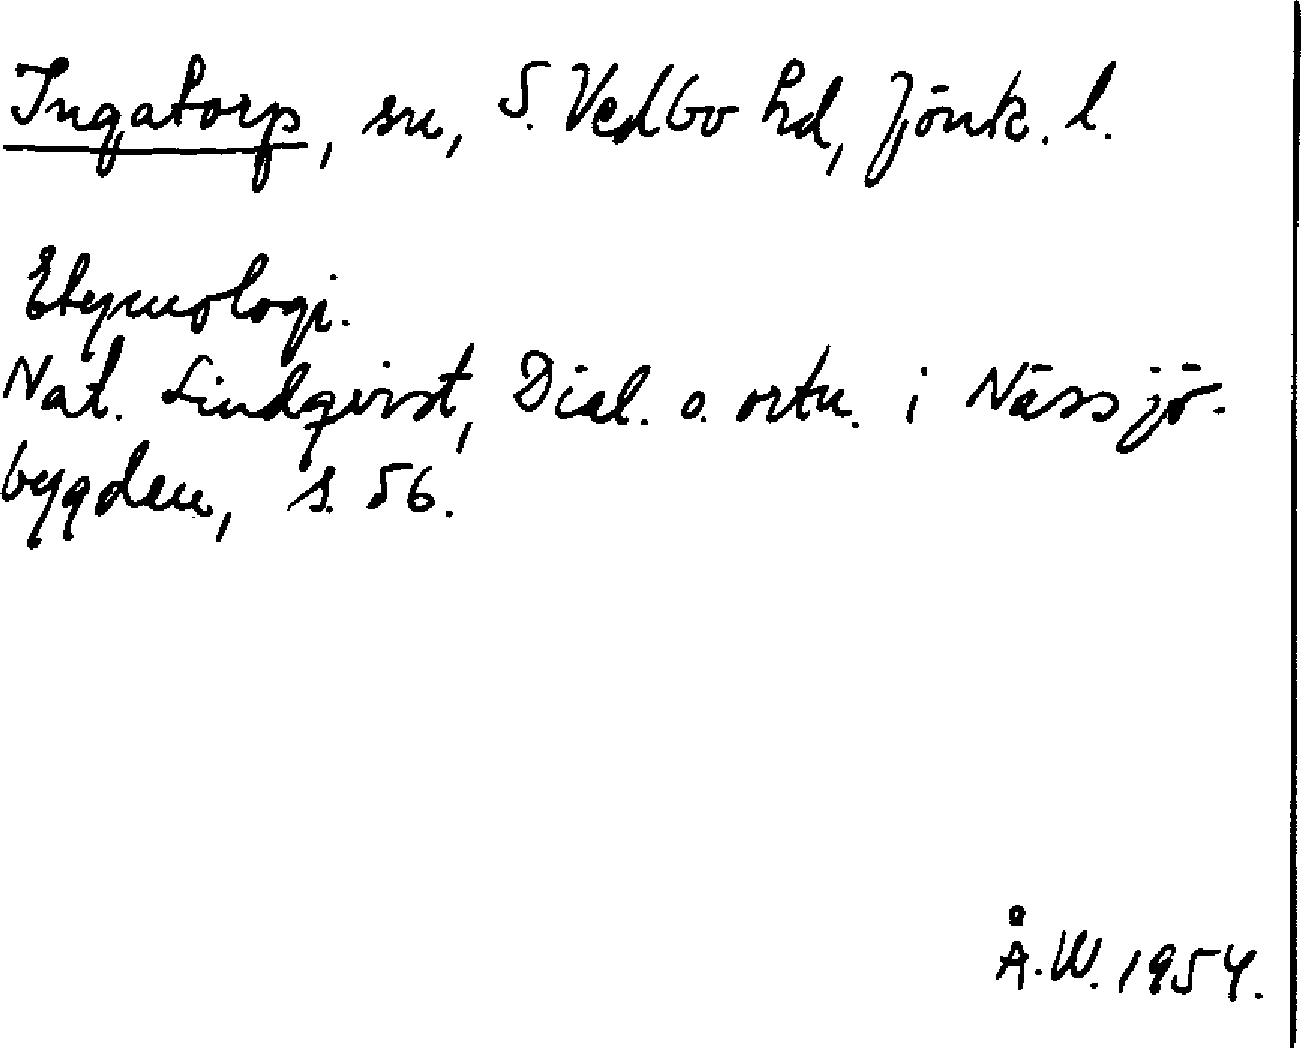 Ingatorp, sn, S. Vedbo hd, Jönk. l.
Etymologi.
Nat. Lindqvist, Dial. o. ortn. i Nässjö-
bygden, s. 56.
Å.W. 1954.